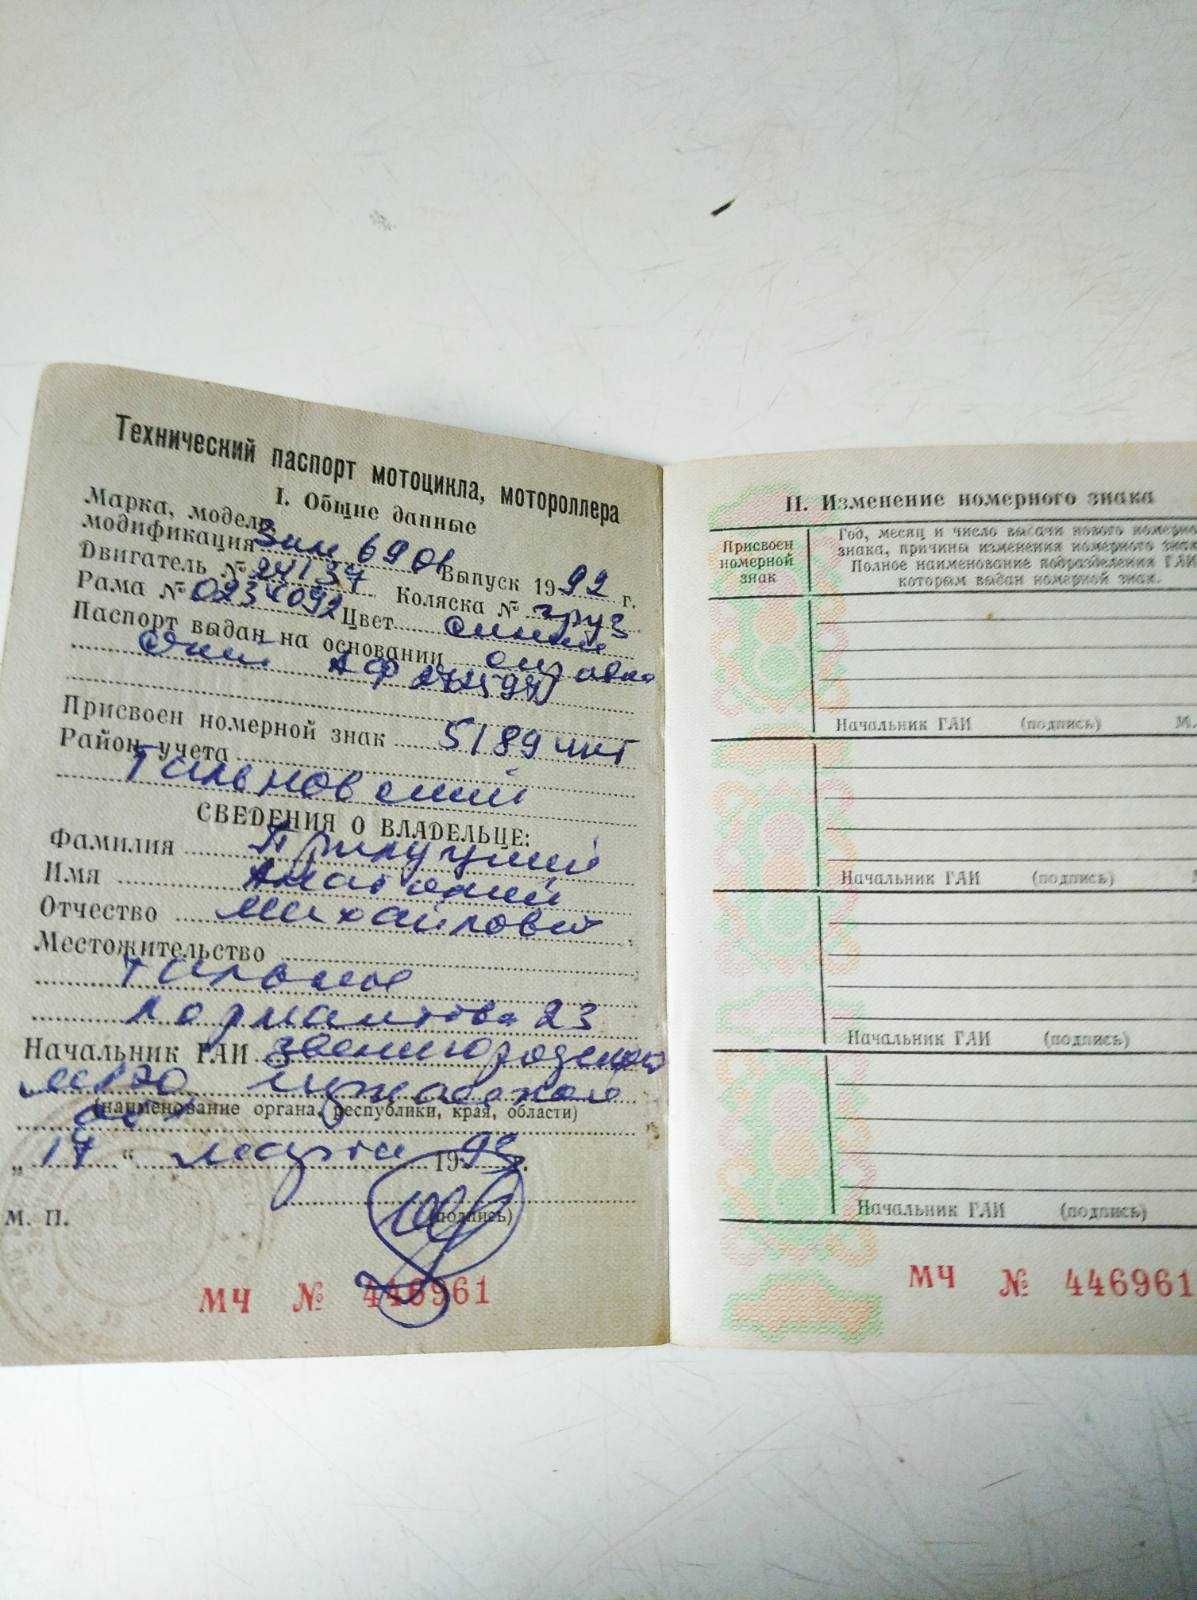 Технический паспорт мотоцикла, мотороллера
I. Общие данные
Марка, модель
модификация Зим 6901 Выпуск 1992 г.
Двигатель № 24137 Коляска № груз
Рама № 0234092 Цвет синий
Паспорт выдан на основании справка
АФ
Присвоен номерной знак 5189 чкт
Район учета
Тальновский
СВЕДЕНИЯ О ВЛАДЕЛЬЦЕ:
Фамилия Прилуцкий
Имя Анатолий
Отчество Михайлович
Местожительство
Тальное
Лермонтова 23
Начальник ГАИ Звенигородского
МРЭО Черкасской
(наименование органа, республики, края, области)
обл
„ 17 “ марта 199
(подпись)
М. П.
МЧ № 446961
II. Изменение номерного знака
Присвоен номерной знак
Год, месяц и число выдачи нового номерно
знака, причины изменения номерного знак
Полное наименование подразделения ГАИ
которым выдан номерной знак.
Начальник ГАИ (подпись) М.
Начальник ГАИ (подпись)
Начальник ГАИ (подпись)
Начальник ГАИ (подпись)
МЧ № 446961